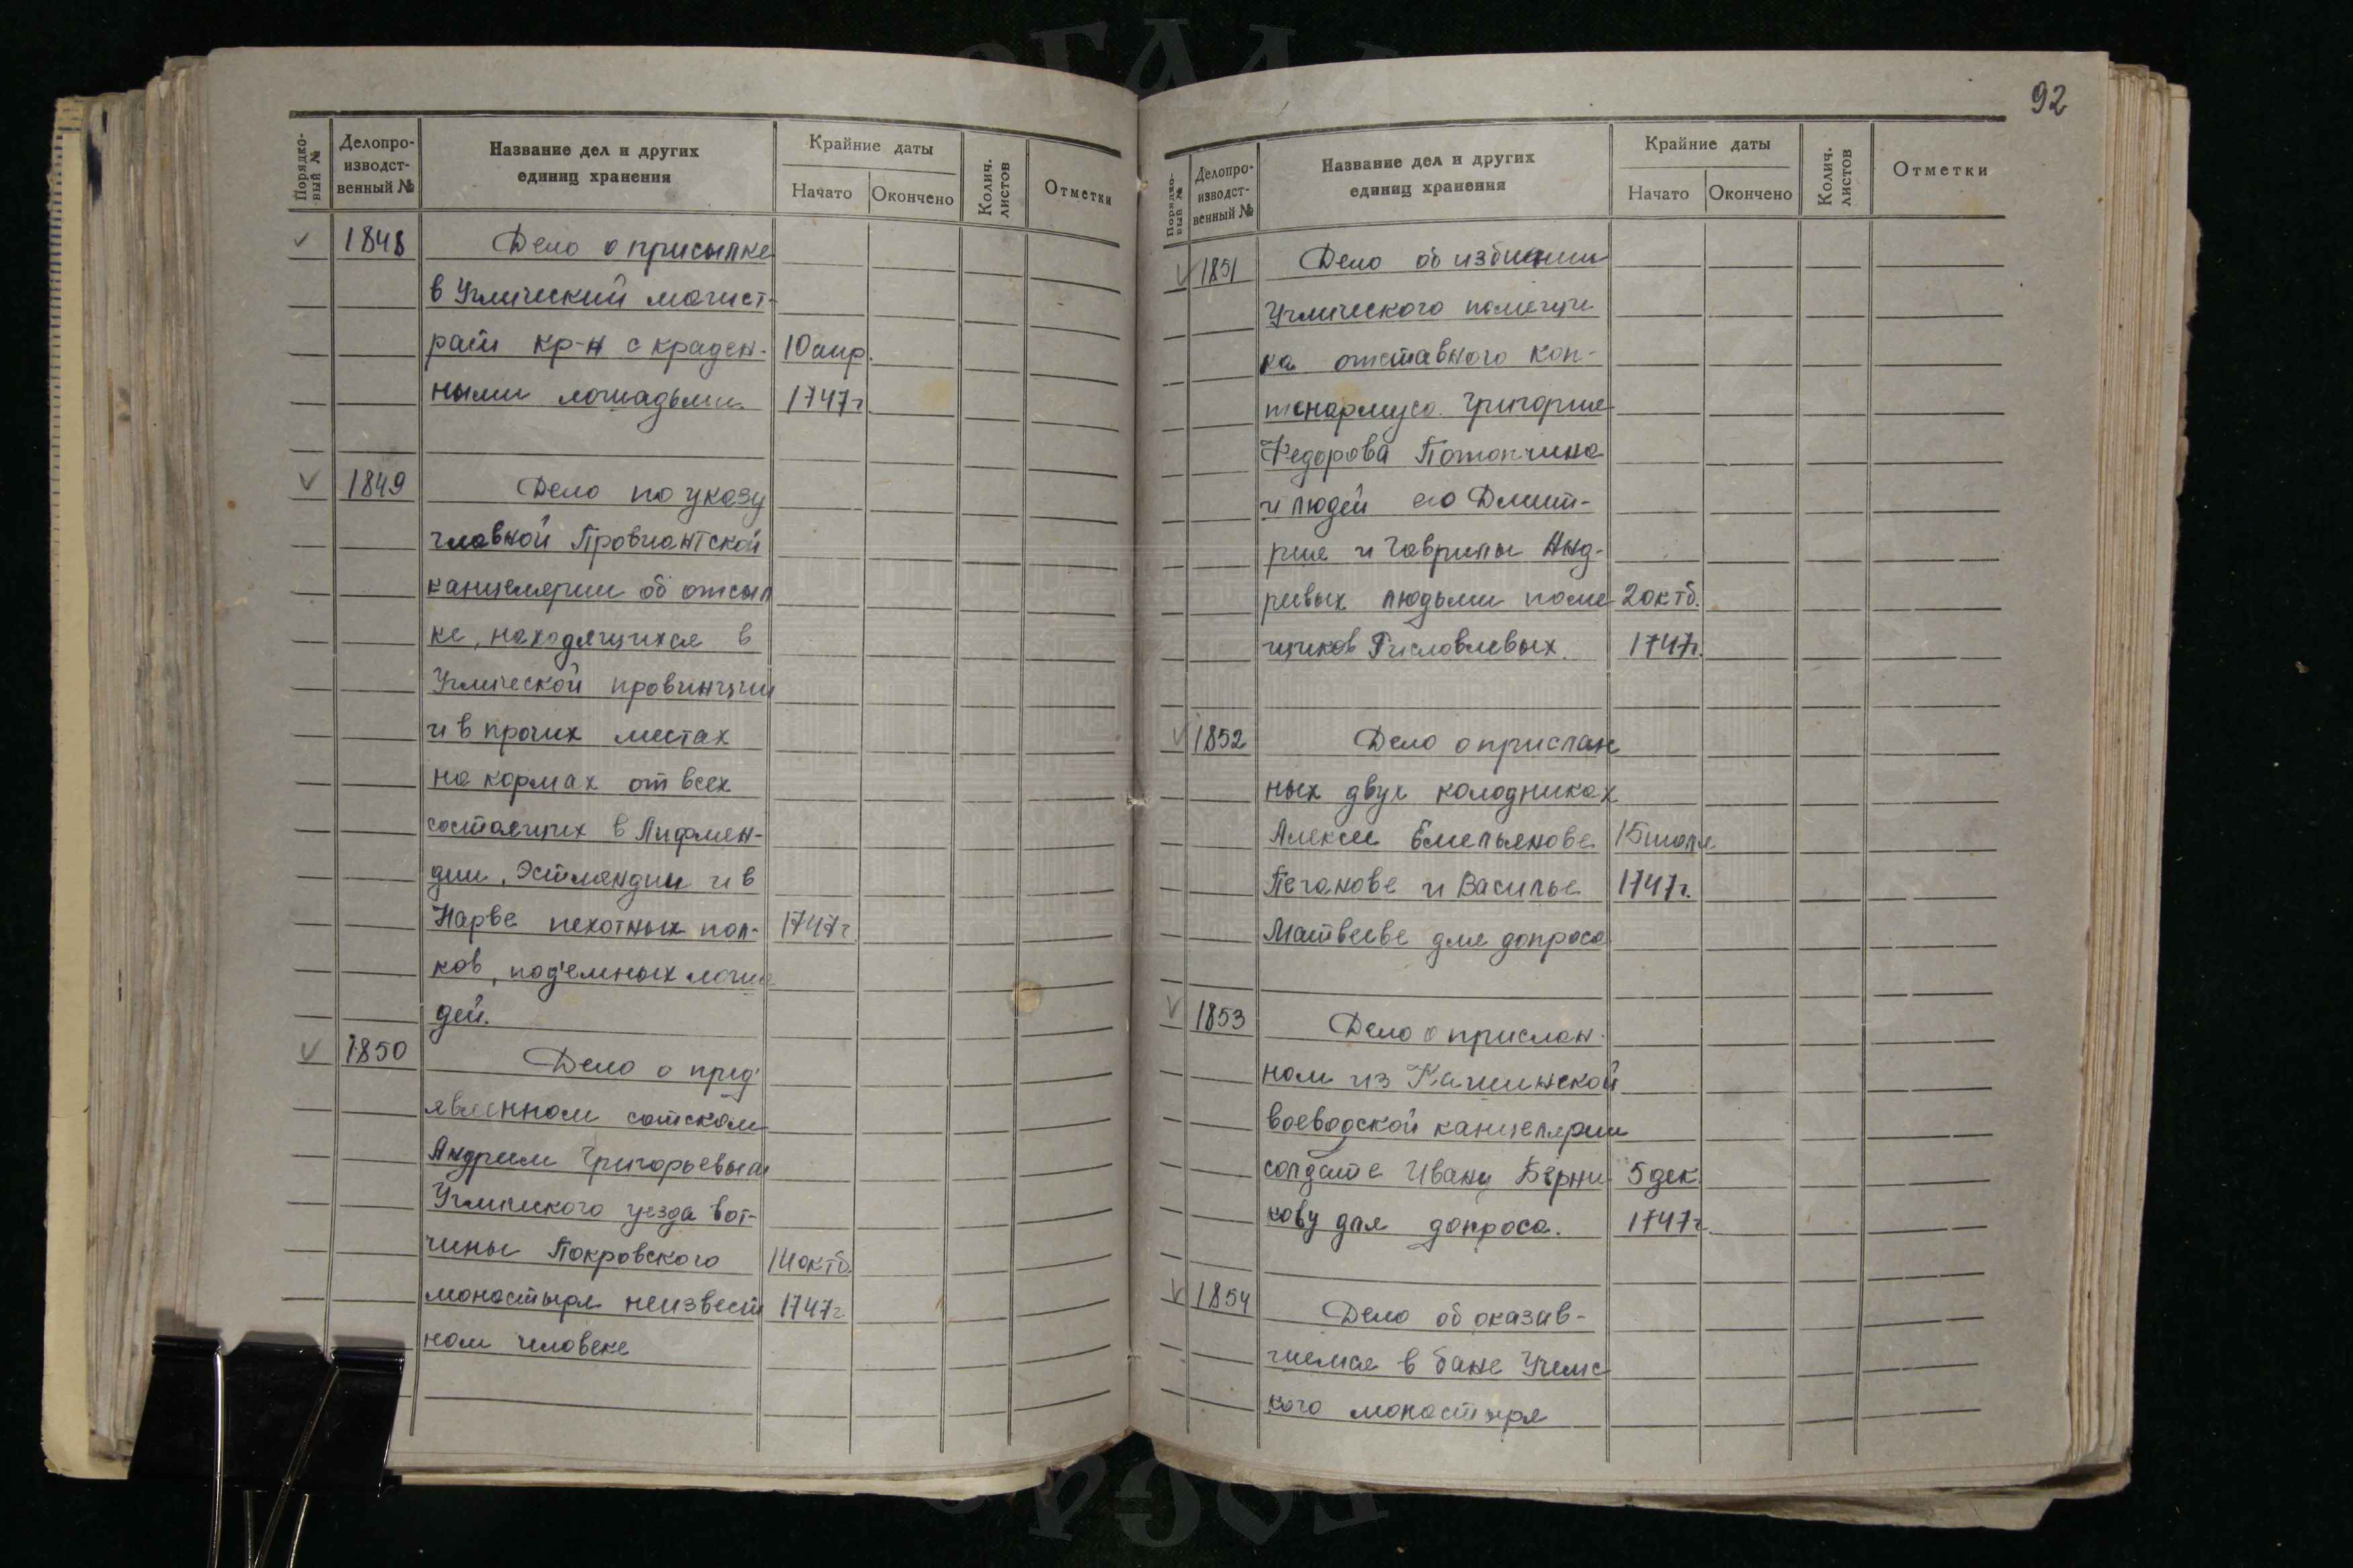 Порядко-
вый №
Делопро-
изводст-
венный №
Название дел и других
единиц хранения
Крайние даты
Начато
Окончено
Колич.
листов
Отметки
√ 1848 Дело о присылке
в Угличский магист-
рат кр-н с краден- 10 апр.
ными лошадьми. 1747г
√ 1849 Дело по указу
главной Провиантской
канцелярии об отсыл
ке, находящихся в
Угличской провинции
и в прочих местах
на кормах от всех
состоящих в Лифлян-
дии, Эстляндии и в
Нарве пехотных пол- 1747г.
ков, под'емных лоша
дей.
√ 1850 Дело о пред'
явленном сотском
Андреем Григорьевым
Угличского уезда вот-
чины Покровского 14 октб.
монастыря неизвест 1747г
ном человеке
92
Порядко-
вый №
Делопро-
изводст-
венный №
Название дел и других
единиц хранения
Крайние даты
Начато
Окончено
Колич.
листов
Отметки
√ 1851 Дело об избиении
Угличского помещи
ка отставного кап-
тенармуса Григория
Федорова Потопчина
и людей его Дмит-
рия и Гаврилы Анд-
реевых людьми поме 2 октб.
щиков 1747г.
√ 1852 Дело о прислан
ных двух колодниках
Алексее Емельянове 15 июля
Печанове и Василье 1747г.
Матвееве для допроса
√ 1853 Дело о прислан-
ном из Кашинской
воеводской канцелярии
солдате Ивану Берни 5 дек.
кову для допроса. 1747г.
√ 1854 Дело об оказав-
шемся в бане Учемс
кого монастыря